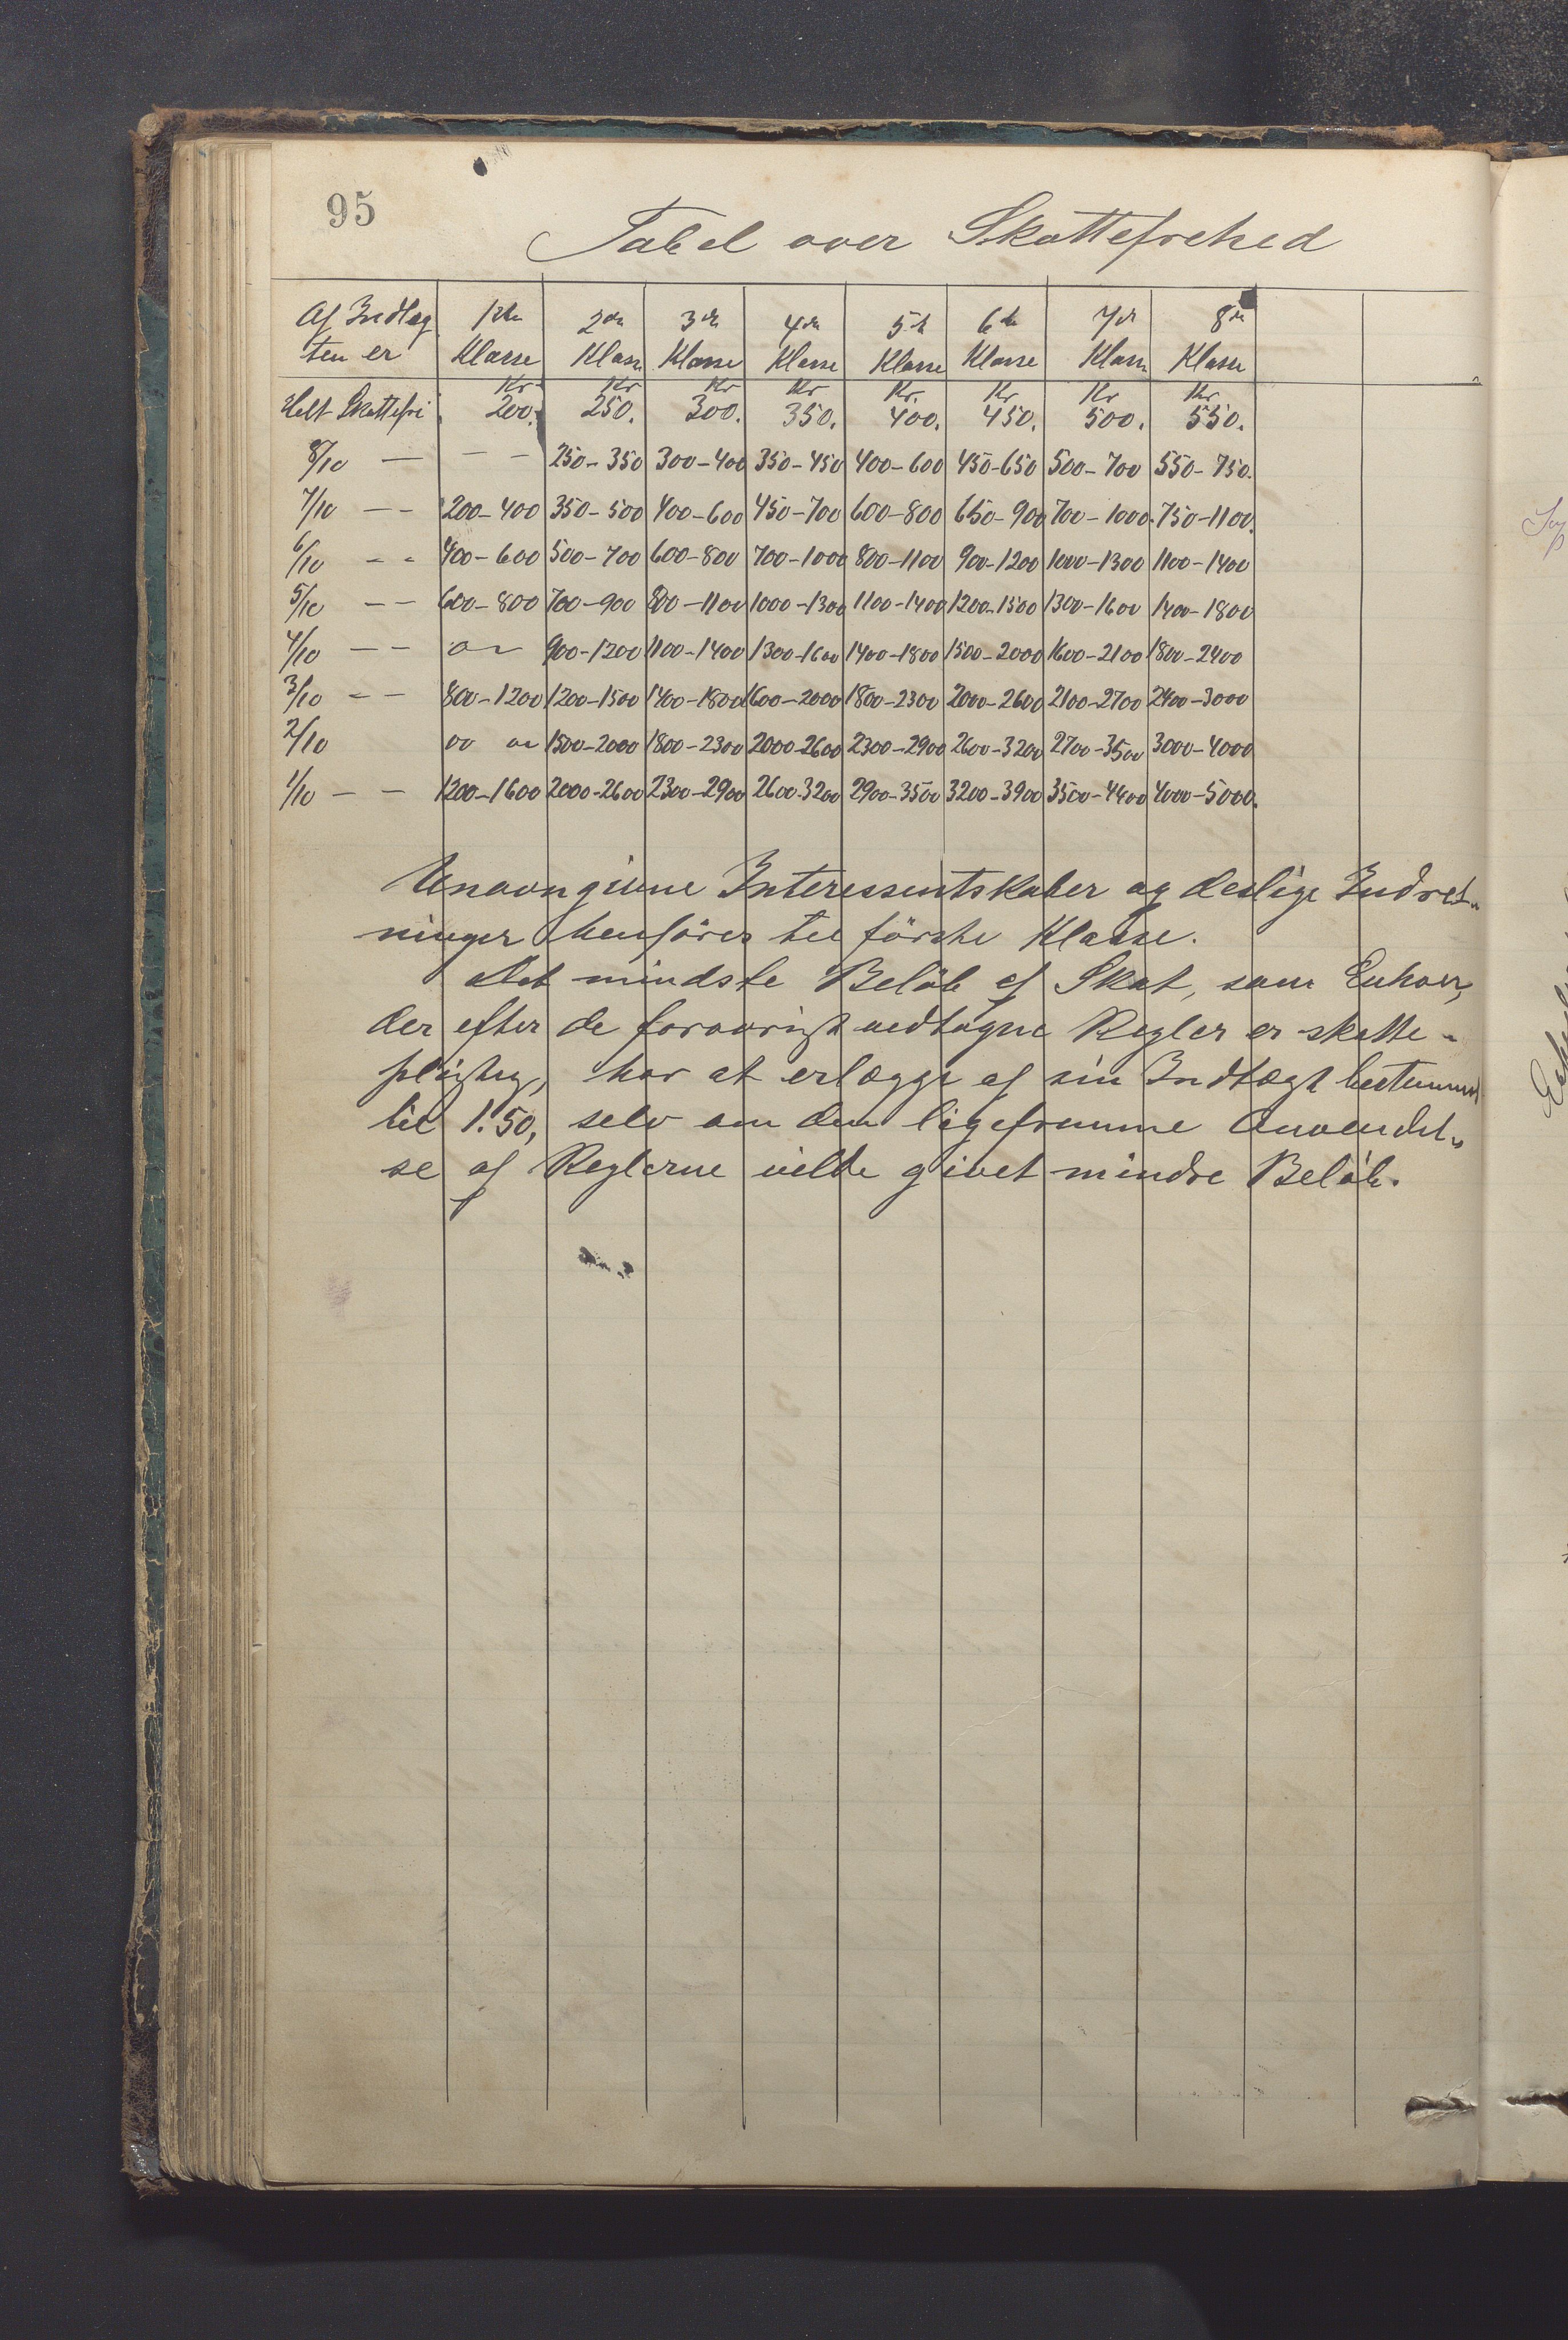 95
Tabel over Skattefrehed
Af Indtæg 1ste 2den 3die 4de 5te 6te 7de 8de
ten er Klasse Klasse Klasse Klasse Klasse Klasse Klasse Klasse
Kr Kr Kr Kr Kr. Kr Kr Kr.
Helt Skattefri 200. 250. 300. 350. 400. 450. 500. 550.
8/10 — — — 250-350 300-400 350-450 400-600 450-650 500-700 550-750.
7/10 — — 200-400 350-500 400-600 450-700 600-800 650-900 700-1000 750-1100.
6/10 - - 400-600 500-700 600-800 700-1000 800-1100 900-1200 1000-1300 1100-1400
5/10 — — 600-800 700-900 800-1100 1000-1300 1100-1400 1200-1500 1300-1600 1400-1800
4/10 — — 900-1200 1100-1400 1300-1600 1400-1800 1500-2000 1600-2100 1800-2400
3/10 - — 800-1200 1200-1500 1400-1800 1600-2000 1800-2300 2000-2600 2100-2700 2400-3000
2/10 1500-2000 1800-2300 2000-2600 2300-2900 2600-3200 2700-3500 3000-4000
1/10 — — 1200-1600 2000-2600 2300-2900 2600-3200 2900-3500 3200-3900 3500-4400 4000-5000.
Unavngivne Interessentskaber og deslige Indret-
ninger henføres til første Klasse.
Det mindste Beløb af Skat, som Enhver,
der efter de forøvrigt vedtagne Regler er skatte-
pligtig, har at erlægge af sin Indtægt bestemmes
til 1.50, selv om den ligefremme Anvendel-
se af Reglerne vilde givet mindre Beløb.